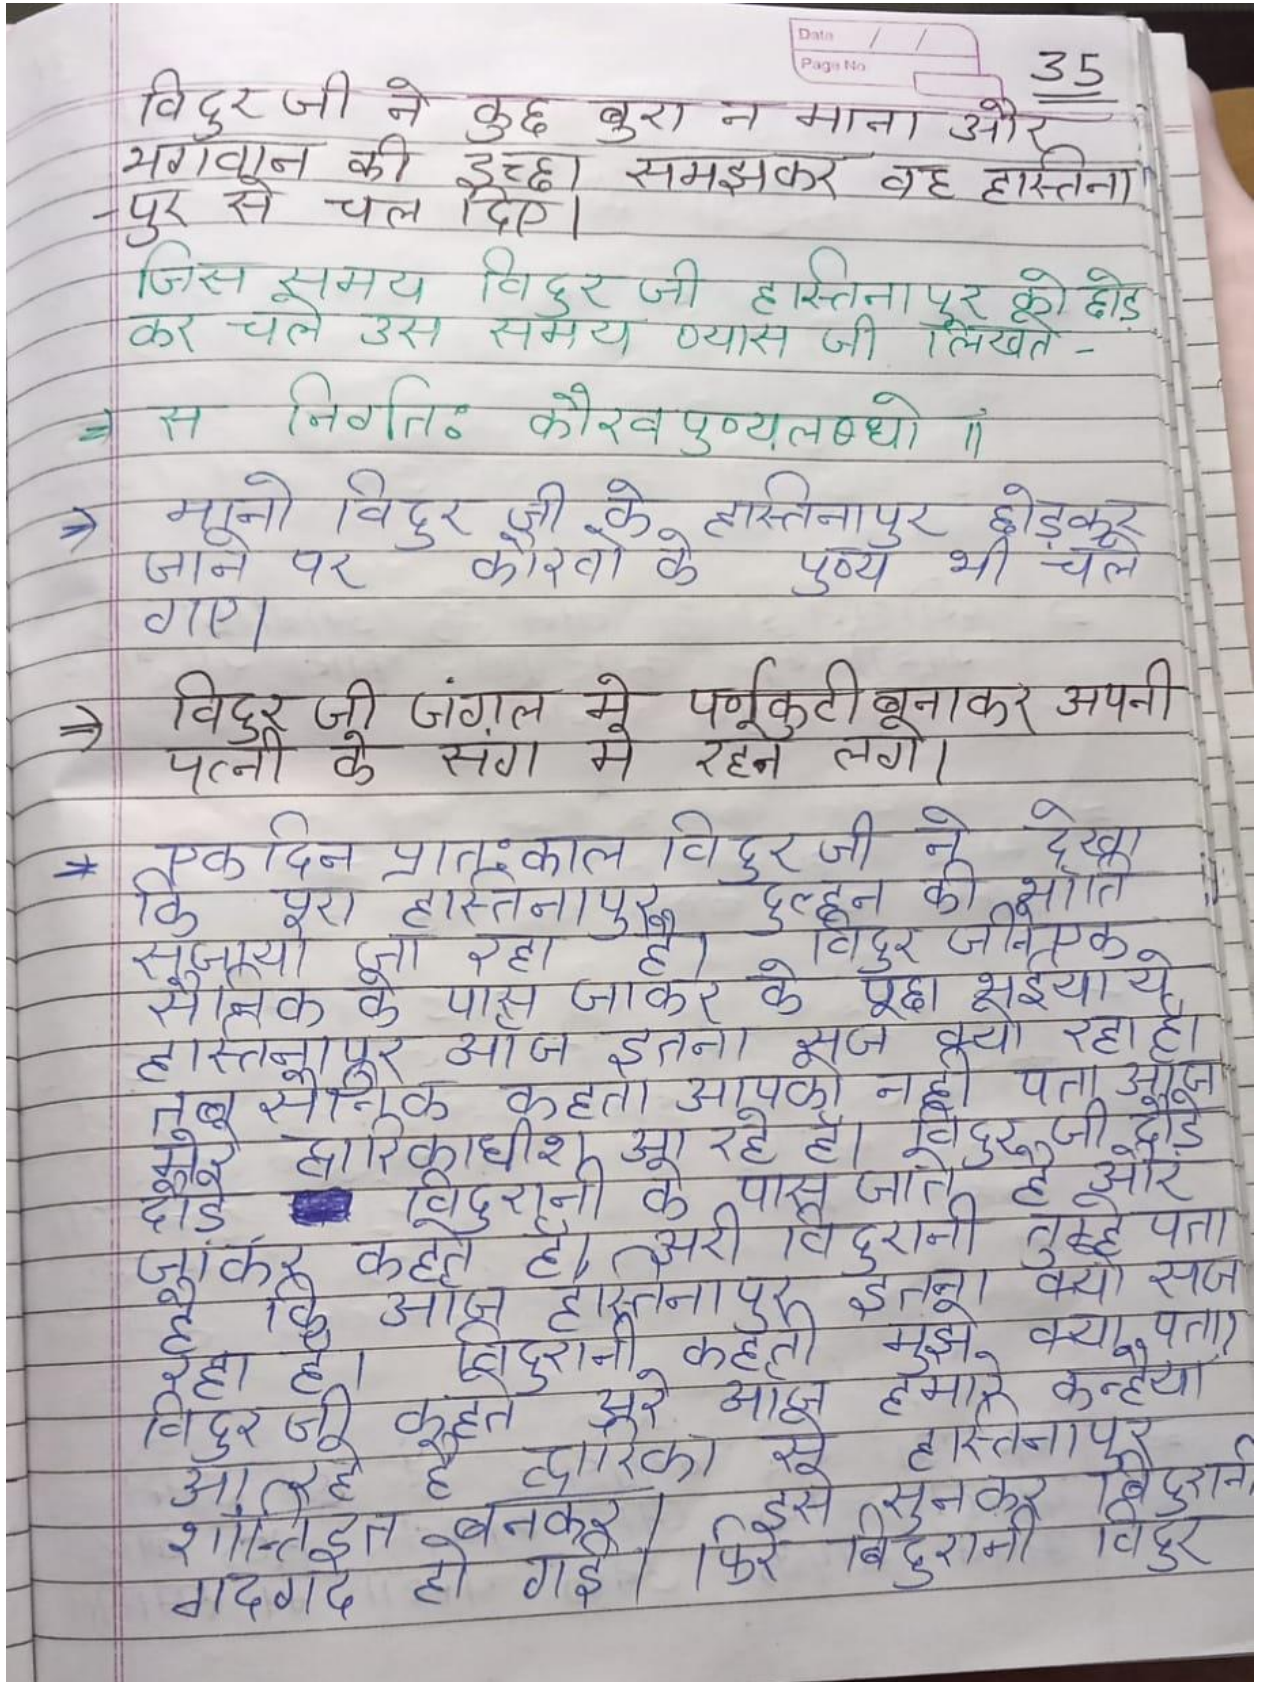 Date / /
Page No
35
विदुर जी ने कुछ बुरा न माना और
भगवान की इच्छा समझकर वह हास्तिना
-पुर से चल दिए।
जिस समय विदुर जी हास्तिनापुर को छोड़
कर चले उस समय व्यास जी लिखते -
⇒ स निर्गतः कौरवपुण्यलब्धो ॥
⇒ मानो विदुर जी के हास्तिनापुर छोड़कर
जाने पर कौरवों के पुण्य भी चले
गए।
⇒ विदुर जी जंगल मे पर्णकुटी बनाकर अपनी
पत्नी के संग मे रहने लगे।
* एक दिन प्रातःकाल विदुर जी ने देखा
कि पूरा हास्तिनापुर दुल्हन की भाति
सजाया जा रहा है। विदुर जी ने एक
सैनिक के पास जाकर के पूछा भईया ये
हास्तिनापुर आज इतना सज क्यो रहा है।
तब सैनिक कहता आपको नही पता आज
मेरे द्वारिकाधीश आ रहे है। विदुर जी दौड़े
दौड़े विदुरानी के पास जाते है और
जाकर कहते है। अरी विदुरानी तुम्हे पता
है कि आज हास्तिनापुर इतना क्यो सज
रहा है। विदुरानी कहती मुझे क्या पता,
विदुर जी कहते अरे आज हमारे कन्हैया
आ रहे है द्वारिका से हास्तिनापुर
शान्तिदूत बनकर। इसे सुनकर विदुरानी
गदगद हो गई। फिर विदुरानी विदुर